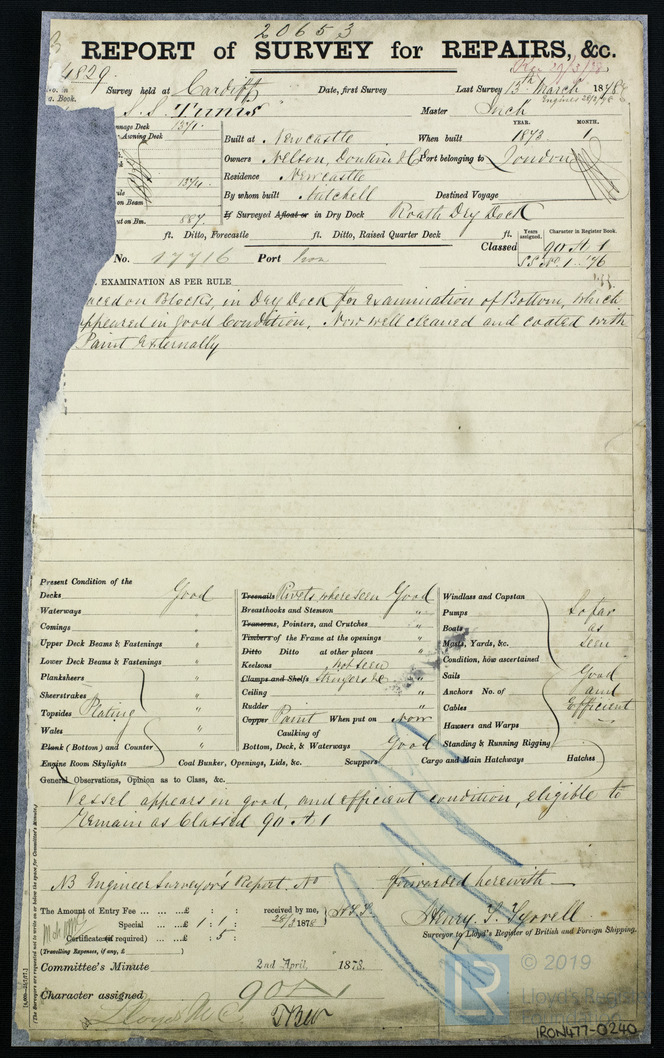 20653
REPORT of SURVEY for REPAIRS, &c.
4829
Survey held at Cardiff Date, first Survey Last Survey 13th March 1878
in Book.
S.S. Tunis Master Inch
Tonnage Deck 1371 YEAR. MONTH.
Awning Deck Built at Newcastle When built 1873 1
Owners Nelson, Donkin & Co Port belonging to London
Residence Newcastle
1371
on Beam By whom built Mitchell Destined Voyage
out on Bm. 887 If Surveyed Afloat or in Dry Dock Roath Dry Dock
ft. Ditto, Forecastle ft. Ditto, Raised Quarter Deck ft. Years assigned. Character in Register Book.
Classed 90 A 1
No. 17716 Port Iron
EXAMINATION AS PER RULE
aced on Blocks, in Dry Dock for Examination of Bottom, which
appeared in good Condition, Now well cleaned and coated with
Paint Externally
Present Condition of the
Decks Good Treenails Rivets where seen Good Windlass and Capstan
Waterways " Breasthooks and Stemson " Pumps So far
Comings " Transoms, Pointers, and Crutches " Boats as
Upper Deck Beams & Fastenings " Timbers of the Frame at the openings " Masts, Yards, &c. seen
Lower Deck Beams & Fastenings " Ditto Ditto at other places " Condition, how ascertained
Planksheers " Keelsons not seen Sails Good
Sheerstrakes " Clamps and Shelfs Stringers &c Anchors No. of and
Topsides Plating " Ceiling " Cables efficient
Wales " Rudder " Hawsers and Warps "
Plank (Bottom) and Counter " Copper Paint When put on Now Standing & Running Rigging
Caulking of
Bottom, Deck, & Waterways Good
Engine Room Skylights Coal Bunker, Openings, Lids, &c. Scuppers Cargo and Main Hatchways Hatches
General Observations, Opinion as to Class, &c.
Vessel appears in good, and efficient condition, eligible to
remain as Classed 90 A 1
NB Engineer Surveyor's Report, No forwarded herewith
The Amount of Entry Fee ... ... ...£ : : received by me,
Special ... ...£ 1 : 1 : 28/3 1878 Henry T. Tyrrell
Certificate (if required) ...£ : 5 : Surveyor to Lloyd's Register of British and Foreign Shipping.
(Travelling Expenses, if any, £ )
Committee's Minute 2nd April, 1878.
Character assigned 90 A 1
Lloyds M.C.
(The Surveyors are requested not to write on or below the space for Committee's Minute.)
LR
© 2019
Lloyd's Register
IRON477-0240